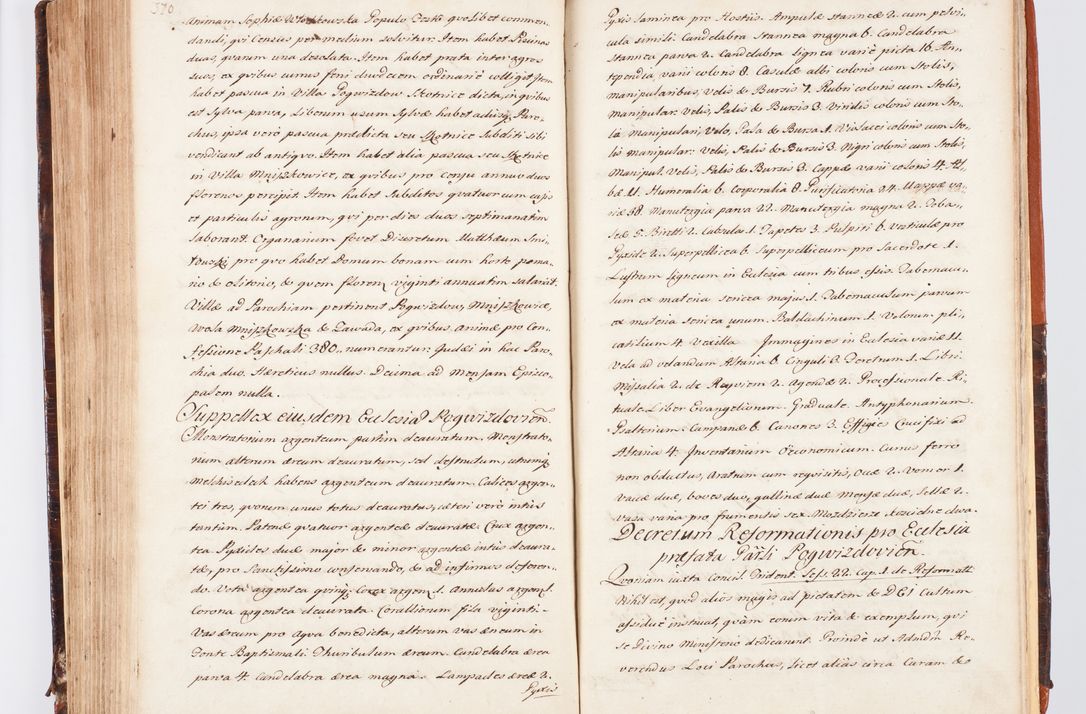 370
animam Sophiæ Włotkowska Populo Festo quolibet commen-
dandi, qui Census per medium solvitur. Item habet Piscinas
duas, quarum una desolata. Item habet prata inter agros
suos, ex quibus currus feni duodecem ordinarie colligit Item
habet pascua in Villa Pogwizdow Skotnice dicta, in quibus
est Sylva parva, Liberum usum Sylvæ habet adusq; Paro-
chus, ipsa verò pascua prædicta seu Skotnice Subditi Sibi
vendicant ab antiquo. Item habet alia pascua seu Skotnice
in Villa Mniszkowice, ex quibus pro censu annuo duos
florenos percipit. Item habet Subditos quatuor cum cujus
et particulis agrorum, qui per dies duos septimanatim
laborant. Organarium fovet Discretum Matthæum Smi-
towski pro quo habet Domum bonam cum horto poma-
rio & olitorio, & quem floren viginti annuatim salariat.
Villæ ad Parochiam pertinent Pogwizdow, Mniszkowice,
Wola Mniszkowska & Zawada, ex quibus animæ pro Con-
fessione Paschali 380. numerantur. Judæi in hac Paro-
chia duo. Hæreticus nullus. Decima ad Mensam Episco-
palem nulla.
Suppellex eiusdem Ecclesiæ Pogwizdovien.
Monstratorium argenteum partim deauratum. Monstrato-
rium alterum æreum deauratum, sed destructum, utrumq;
melchisedech habens argenteum deauratum. Calices argen-
tei tres, quorum unus totus deauratus, cæteri verò intus
tantum. Patenæ quatuor argenteæ deauratæ. Crux argen-
tea Pyxides duæ major & minor argenteæ intùs deaura-
tæ, pro Sanctissimo conservando, & ad infirmos deferen-
do. Vota argentea quinq; Corex argen 1. Annulus argen 1.
Corona argentea deaurata. Corallorum fila viginti.
Vas æreum pro Aqva benedicta, alterum vas æneum in
Fonte Baptismali. Thuribulum æreum. Candelabra ærea
parva 4. Candelabra ærea magna. Lampades æreæ 2.
Pyxis
Pyxis laminea pro Hostiis. Ampulæ stanneæ 2. cum pelvi-
cula simili. Candelabra Stannea magna 6. Candelabra
stannea parva 2. Candelabra lignea variè picta 16. An-
tependia varii coloris 8. Casulæ albi coloris cum Stolis,
manipularibus, Velis & Bursis 7. Rubri coloris cum Stolis,
manipular: Velis, Palis & Bursis 3. Viridis coloris cum Sto-
la manipulari, Velo, Pala & Bursa 1. Violacei coloris cum Sto-
lis manipular: Velis, Palis & Bursis 3. Nigri coloris cum Stolis,
Manipul. Velis, Palis & Bursis 3. Cappæ varii coloris 4. Al-
bæ 11. Humeralia 6. Corporalia 8. Purificatoria 24. Mappæ va-
riæ 38. Manutergia parva 22. Manutergia magna 2. Toba-
leæ 5. Biretti 2. Tabulas 1. Tapetes 3. Pulpiti 6. Vesticulæ pro
Pyxide 2. Superpellicea 6. Superpelliceum pro Sacerdote 1.
Lustrum ligneum in Ecclesia cum tribus essis. Tabernacu-
lum ex materia sericea majus 1. Tabernaculum parvum
ex materia sericea unum. Baldachinum 1. Velorum pli-
catilium 4. Vexilla Immagines in Ecclesia variæ 11.
Vela ad velandum Altaria 6. Cinguli 8. Feretrum 1. Libri
Missalia 2. de Requiem 2. Agendæ 2. Processionale. Ri-
tuale. Liber Evangeliorum. Graduale. Antyphonarium.
Psalterium. Campanæ 6. Canones 3. Effigies Crucifixi ad
Altaria 4. Inventarium Oeconomicum. Currus ferro
non obductus, Aratrum cum requisitis, Occæ 2. Vomer 1.
Vaccæ duæ, boves duo, gallinæ duæ Mensæ duæ, Sellæ 2.
Vasa varia pro frumentis sex. Mozdzierze Kuscielne dwa.
Decretum Reformationis pro Ecclesia
præfata Parli Pogwizdovien.
Quoniam iuxta Concil. Trident. Sess. 22. Cap. 1. de Reformatt
Nihil est, quod alios magis ad pietatem & DEI Cultum
assiduè instruat, quàm eorum vita & exemplum, qui
se Divino Ministerio dedicarunt. Proinde ut Admdm Re-
verendus Loci Parochus, licet aliàs circa Curam &